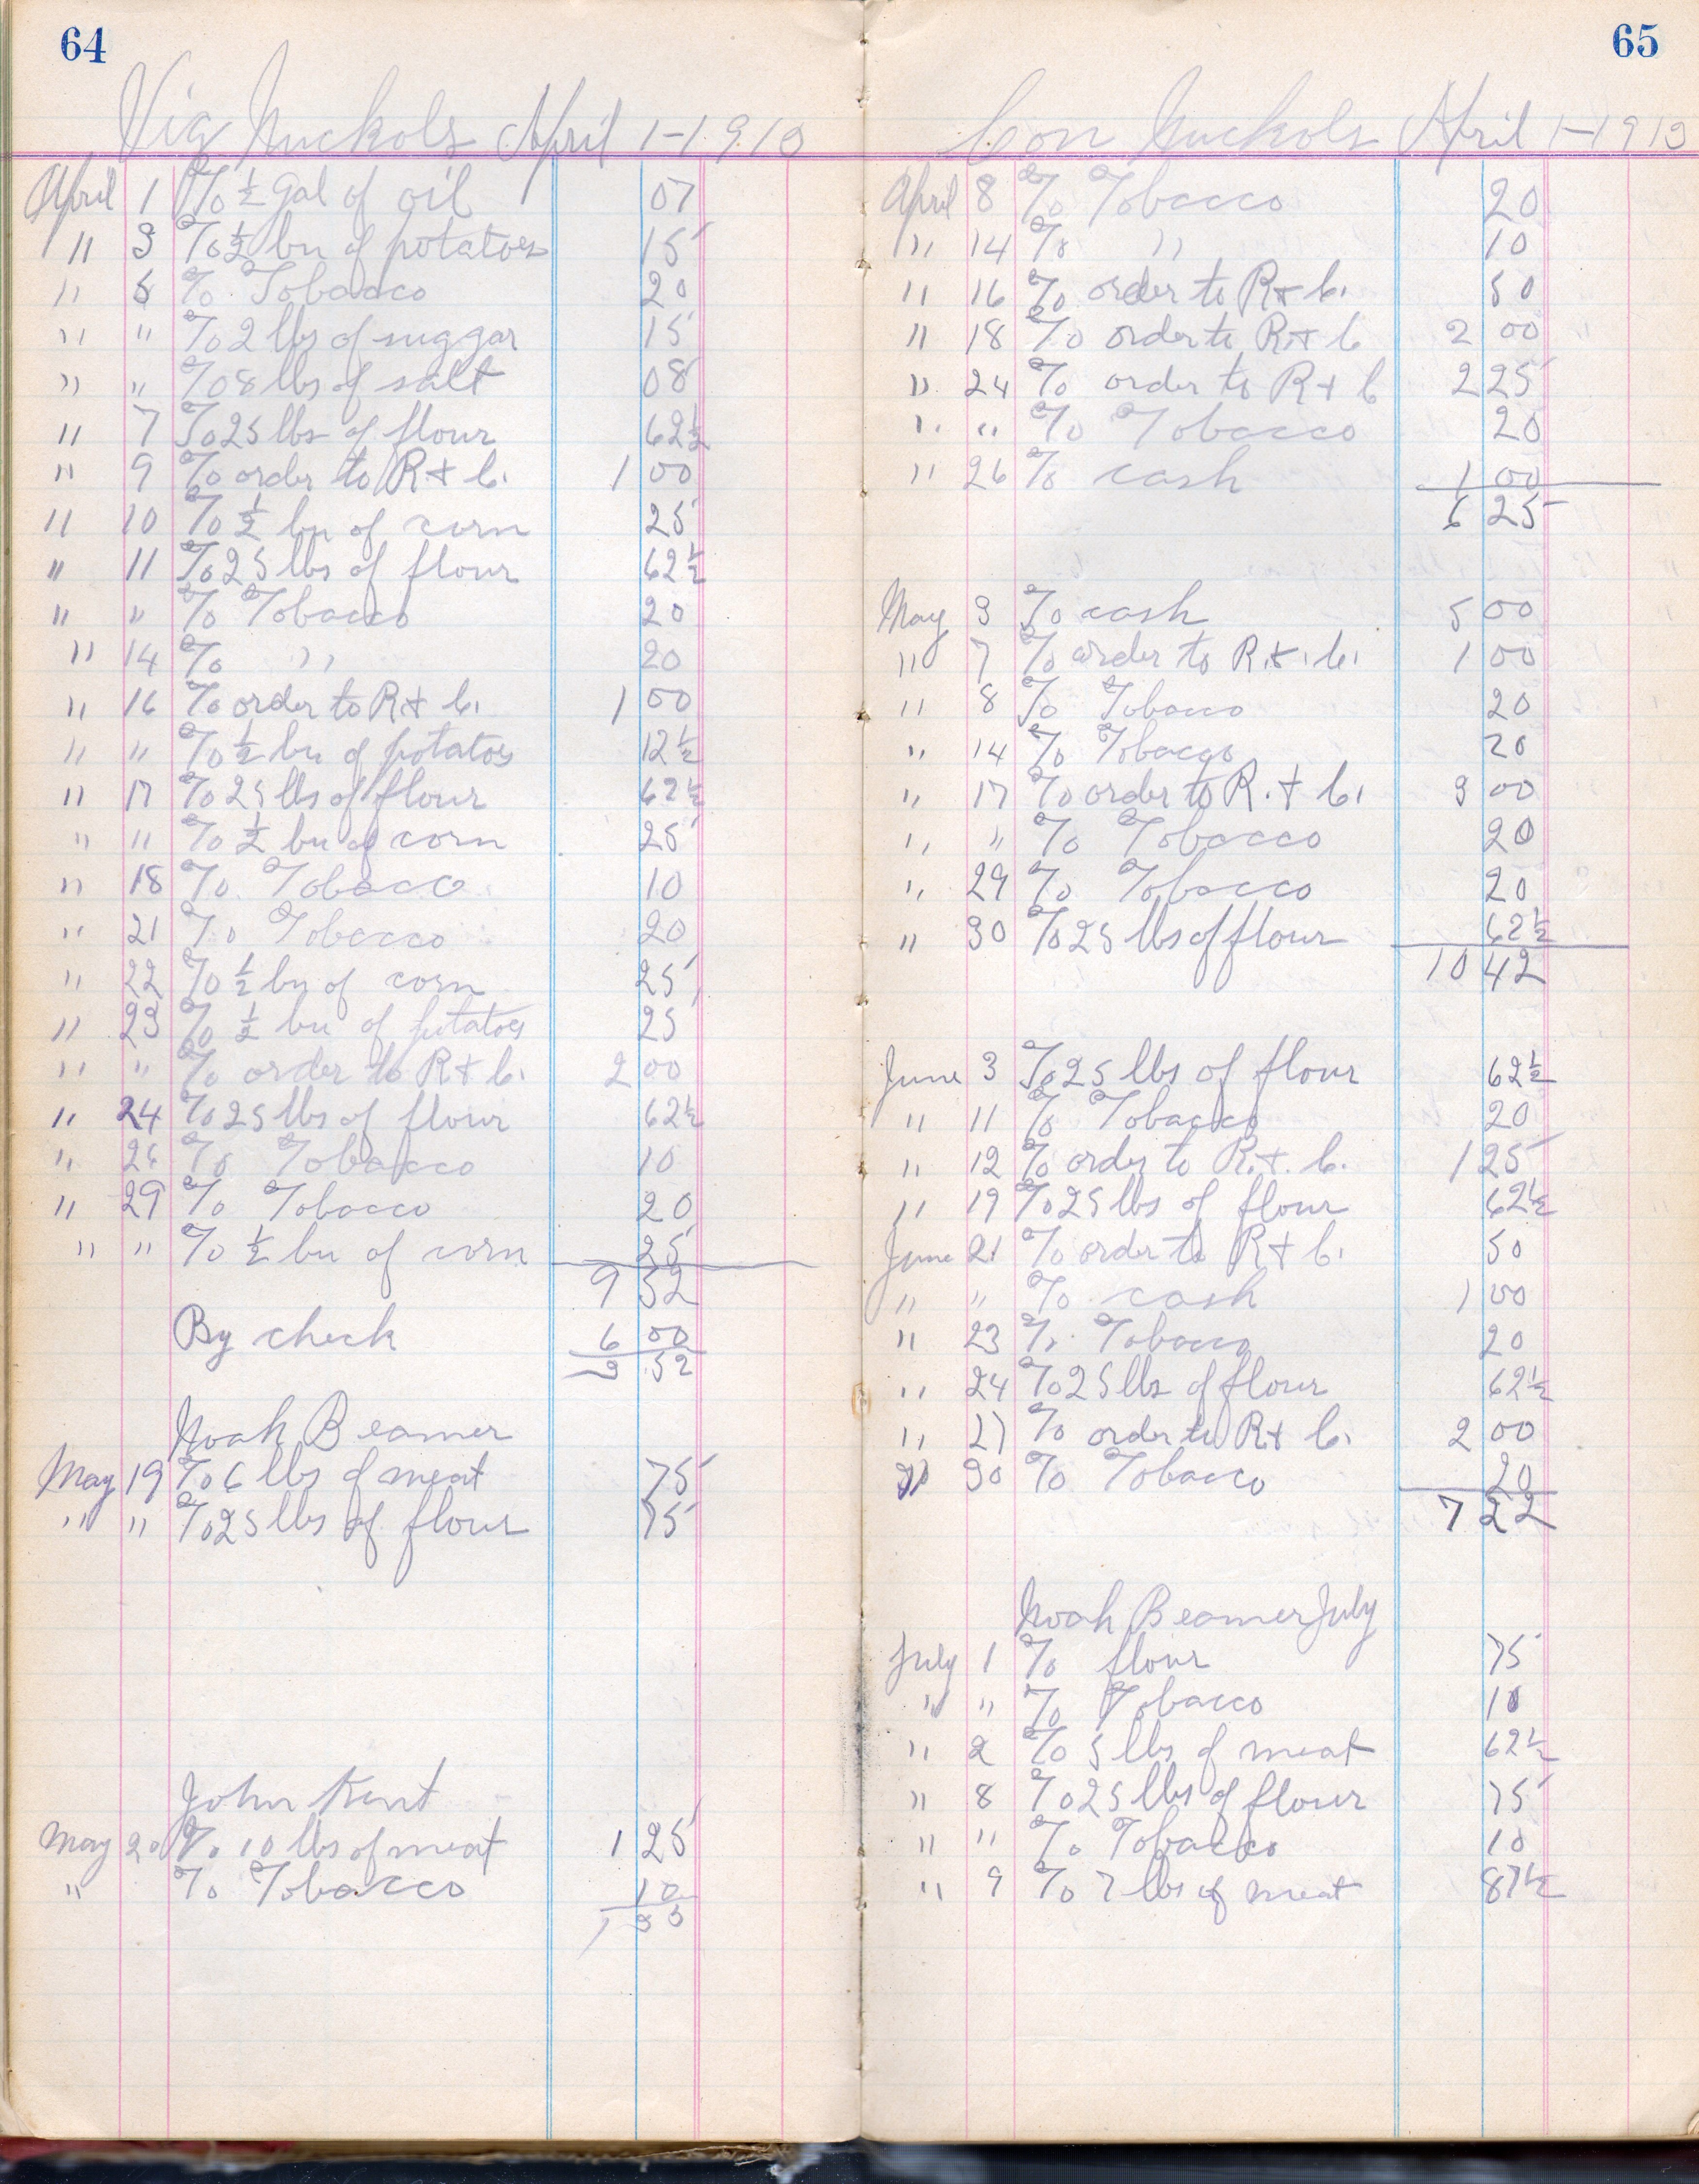 64
Vig Nuckols April 1-1913
April 1 To ½ Gal of oil 07
" 3 To ½ bu of potatoes 15
" 5 To Tobacco 20
" " To 2 lbs of suggar 15
" " To 8 lbs of salt 08
" 7 To 25 lbs of flour 62½
" 9 To order to R + C. 1 00
" 10 To ½ bu of corn 25
" 11 To 25 lbs of flour 62½
" " To Tobacco 20
" 14 To " 20
" 16 To order to R + C. 1 00
" " To ½ bu of potatoes 12½
" 17 To 25 lbs of flour 62½
" " To ½ bu of corn 25
" 18 To Tobacco 10
" 21 To Tobacco 20
" 22 To ½ bu of corn 25
" 23 To ½ bu of potatoes 25
" " To order to R + C. 2 00
" 24 To 25 lbs of flour 62½
" 26 To Tobacco 10
" 29 To Tobacco 20
" " To ½ bu of corn 25
9 52
By check 6 00
3 52
Noah Beamer
May 19 To 6 lbs of meat 75
" " To 25 lbs of flour 75
John Kent
May 20 To 10 lbs of meat 1 25
" To Tobacco 10
1 35
65
Con Nuckols April 1-1913
April 8 To Tobacco 20
" 14 To " 10
" 16 To order to R + C. 50
" 18 To order to R + C 2 00
" 24 To order to R + C 2 25
" " To Tobacco 20
" 26 To cash 1 00
6 25
May 3 To cash 5 00
" 7 To order to R. + C. 1 00
" 8 To Tobacco 20
" 14 To Tobacco 20
" 17 To order to R. + C. 3 00
" " To Tobacco 20
" 29 To Tobacco 20
" 30 To 25 lbs of flour 62½
10 42
June 3 To 25 lbs of flour 62½
" 11 To Tobacco 20
" 12 To order to R. + C. 1 25
" 19 To 25 lbs of flour 62½
June 21 To order to R + C. 50
" " To cash 1 00
" 23 To Tobacco 20
" 24 To 25 lbs of flour 62½
" 27 To order to R + C. 2 00
" 30 To Tobacco 20
7 22
Noah Beamer July
July 1 To flour 75
" " To Tobacco 10
" 2 To 5 lbs of meat 62½
" 8 To 25 lbs of flour 75
" " To Tobacco 10
" 9 To 7 lbs of meat 87½